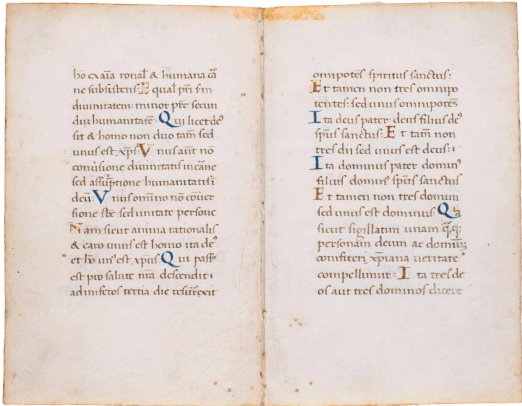 ho ex aīa ronal' & humana ca
ne subsistens: E qual' pri s'm
diuinitatem: minor pr̄e secun
duȝ humanitatē: Q ui licet de9
sit & homo non duo tam̄ sed
unus est xp̄s: V nus aūt nō
conuersione diuinitatis in carne
sed assūptione humanitatis ī
deū: V nus omnō nō cōuer
sione sed unitate persone
N am sicut anima rationalis
& caro unus est homo ita de9
et hō un9 est xp̄us: Q ui pass9
est pro salute nr̄a descendit
ad inferos tertia die resurrexit
omnipotēs spiritus sanctus:
E t tamen non tres omnipo
tentes: sed unus omnipotēs
I ta deus pater: deus filius de9
sp̄us sanctus: E t tam̄ non
tres dii sed unus est deus:
I ta dominus pater domin9
filius domin9 sp̄us sanctus
E t tamen non tres domini
sed unus est dominus Q a
sicut sigillatim unam q̄q̄
personam deum ac dominū
confiteri xp̄iana ueritate
compellimur: I ta tres de
os aut tres dominos dicere